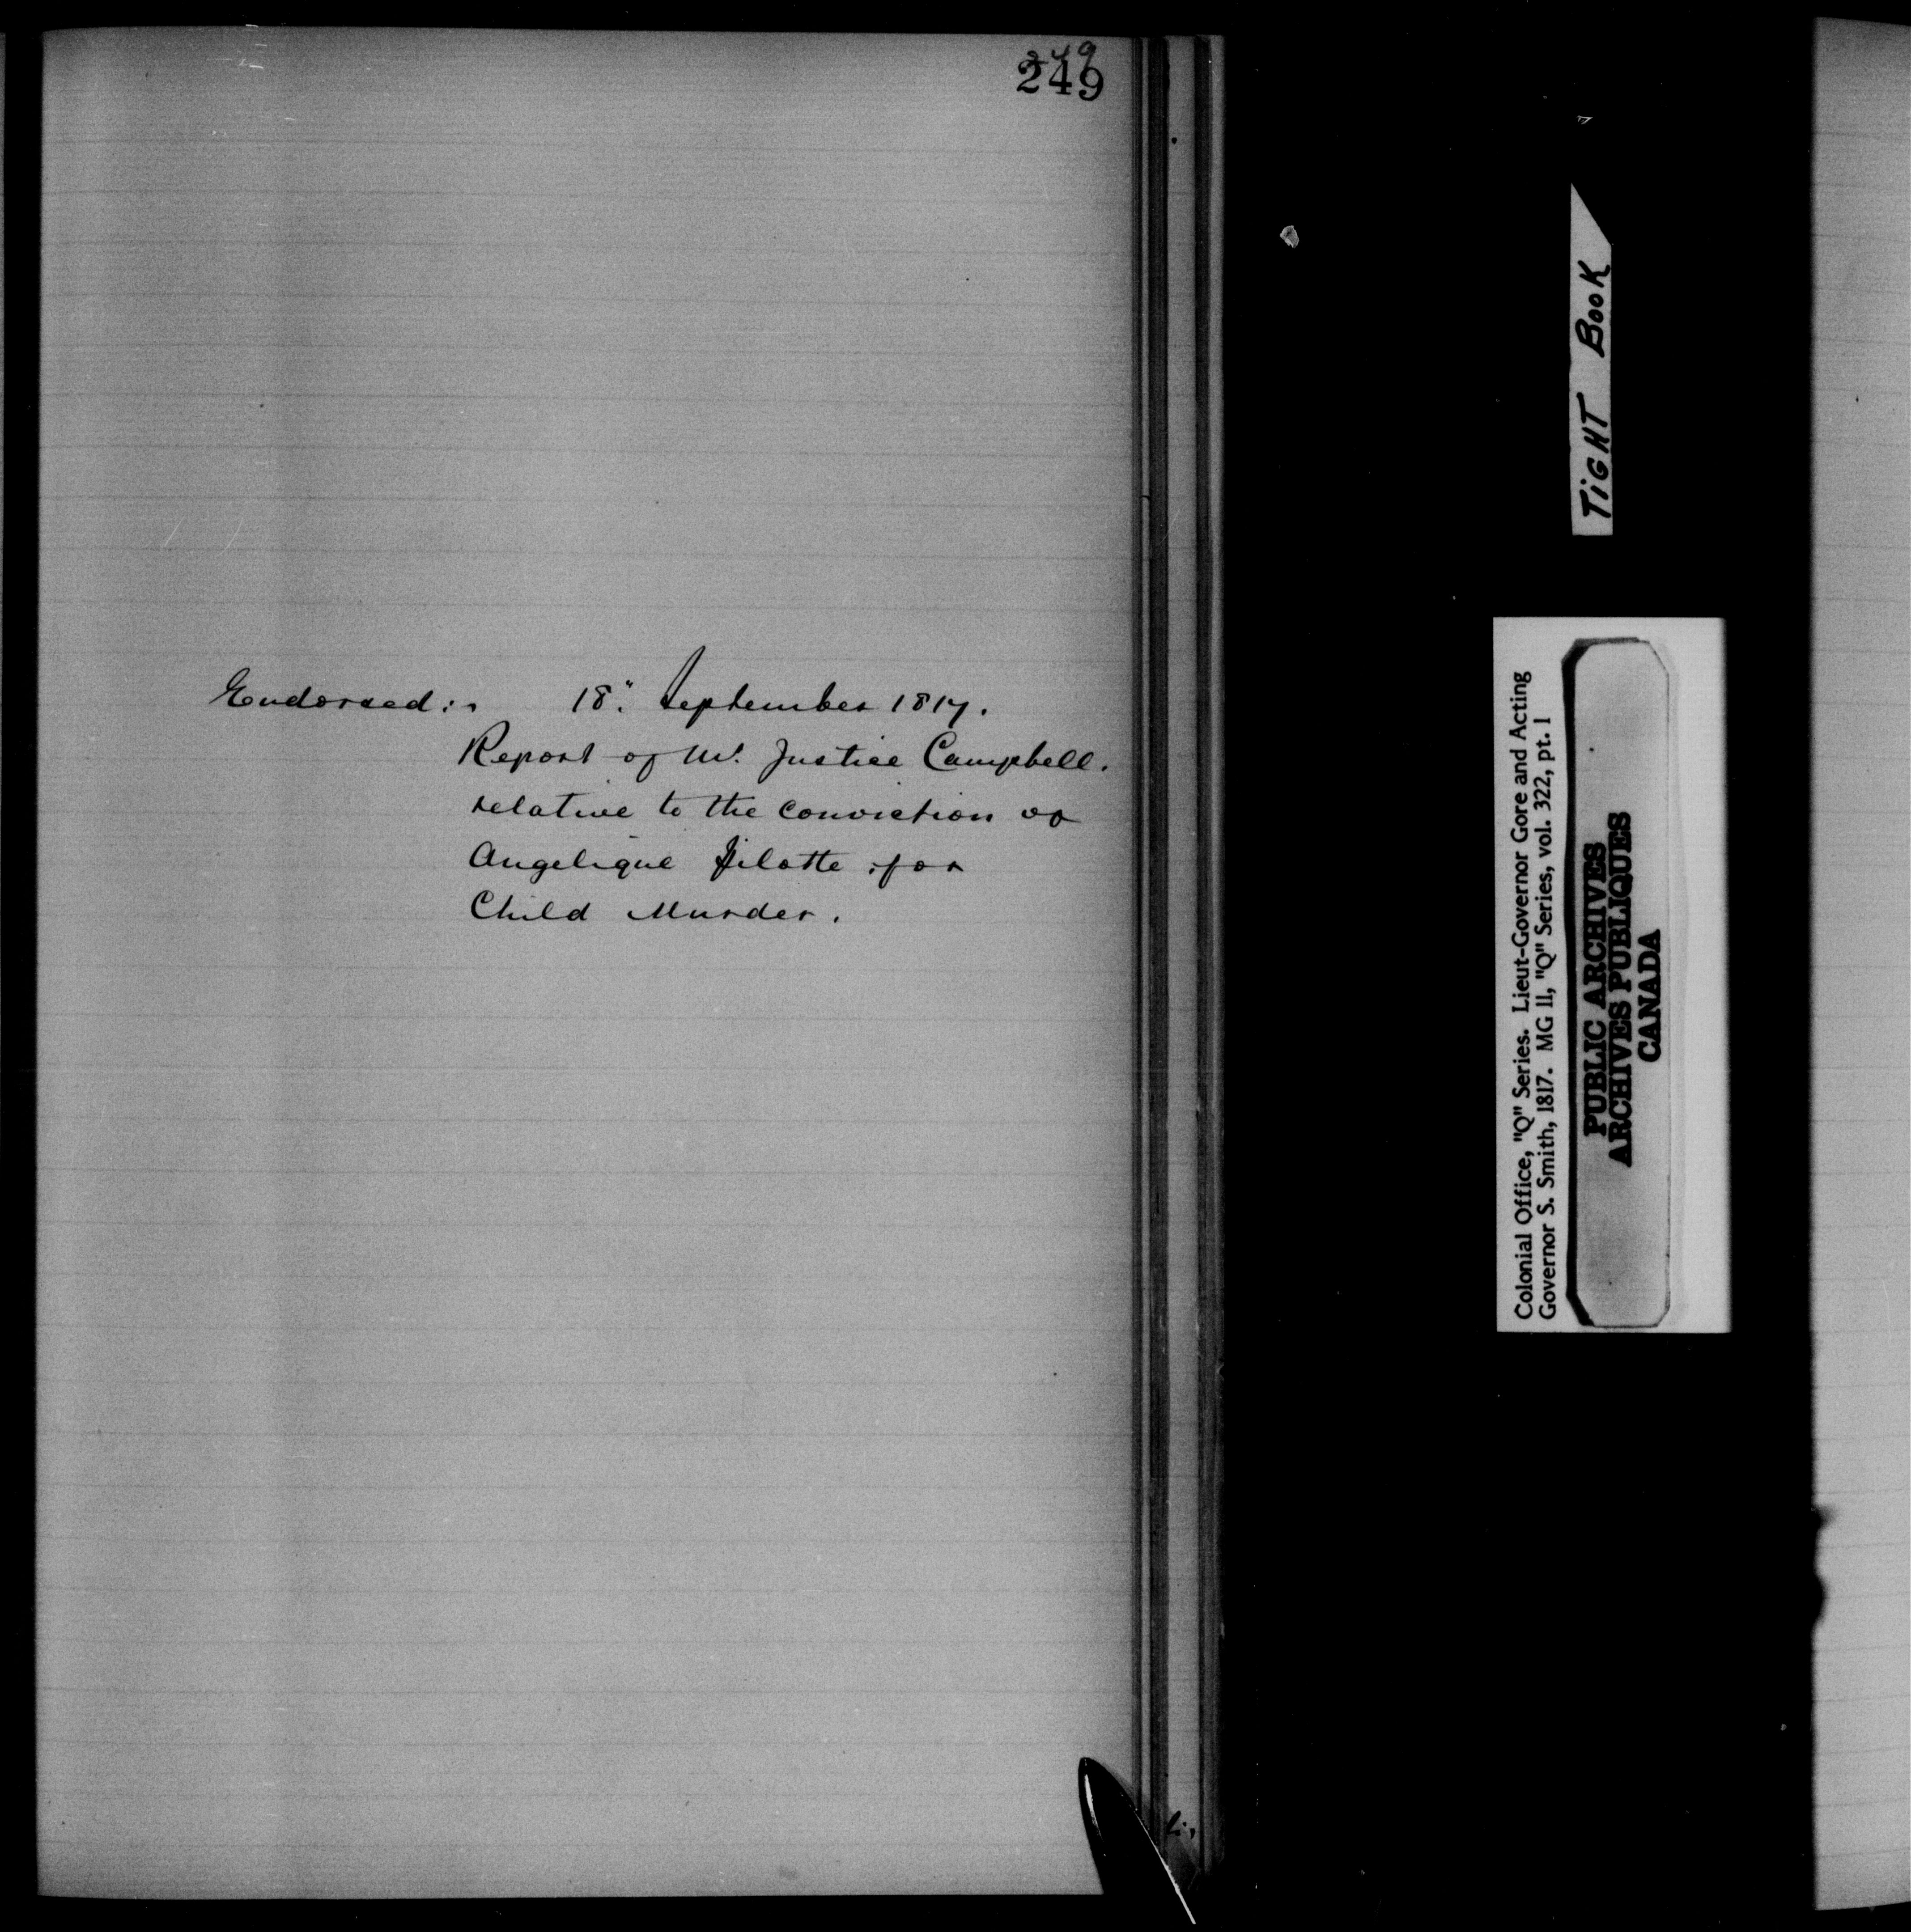 249
249
Endorsed:- 18th September 1817.
Report of Mr. Justice Campbell.
relative to the conviction of
Angelique Pilotte for
Child Murder.
TIGHT BOOK
Colonial Office, "Q" Series. Lieut-Governor Gore and Acting
Governor S. Smith, 1817. MG 11, "Q" Series, vol. 322, pt. 1
PUBLIC ARCHIVES
ARCHIVES PUBLIQUES
CANADA